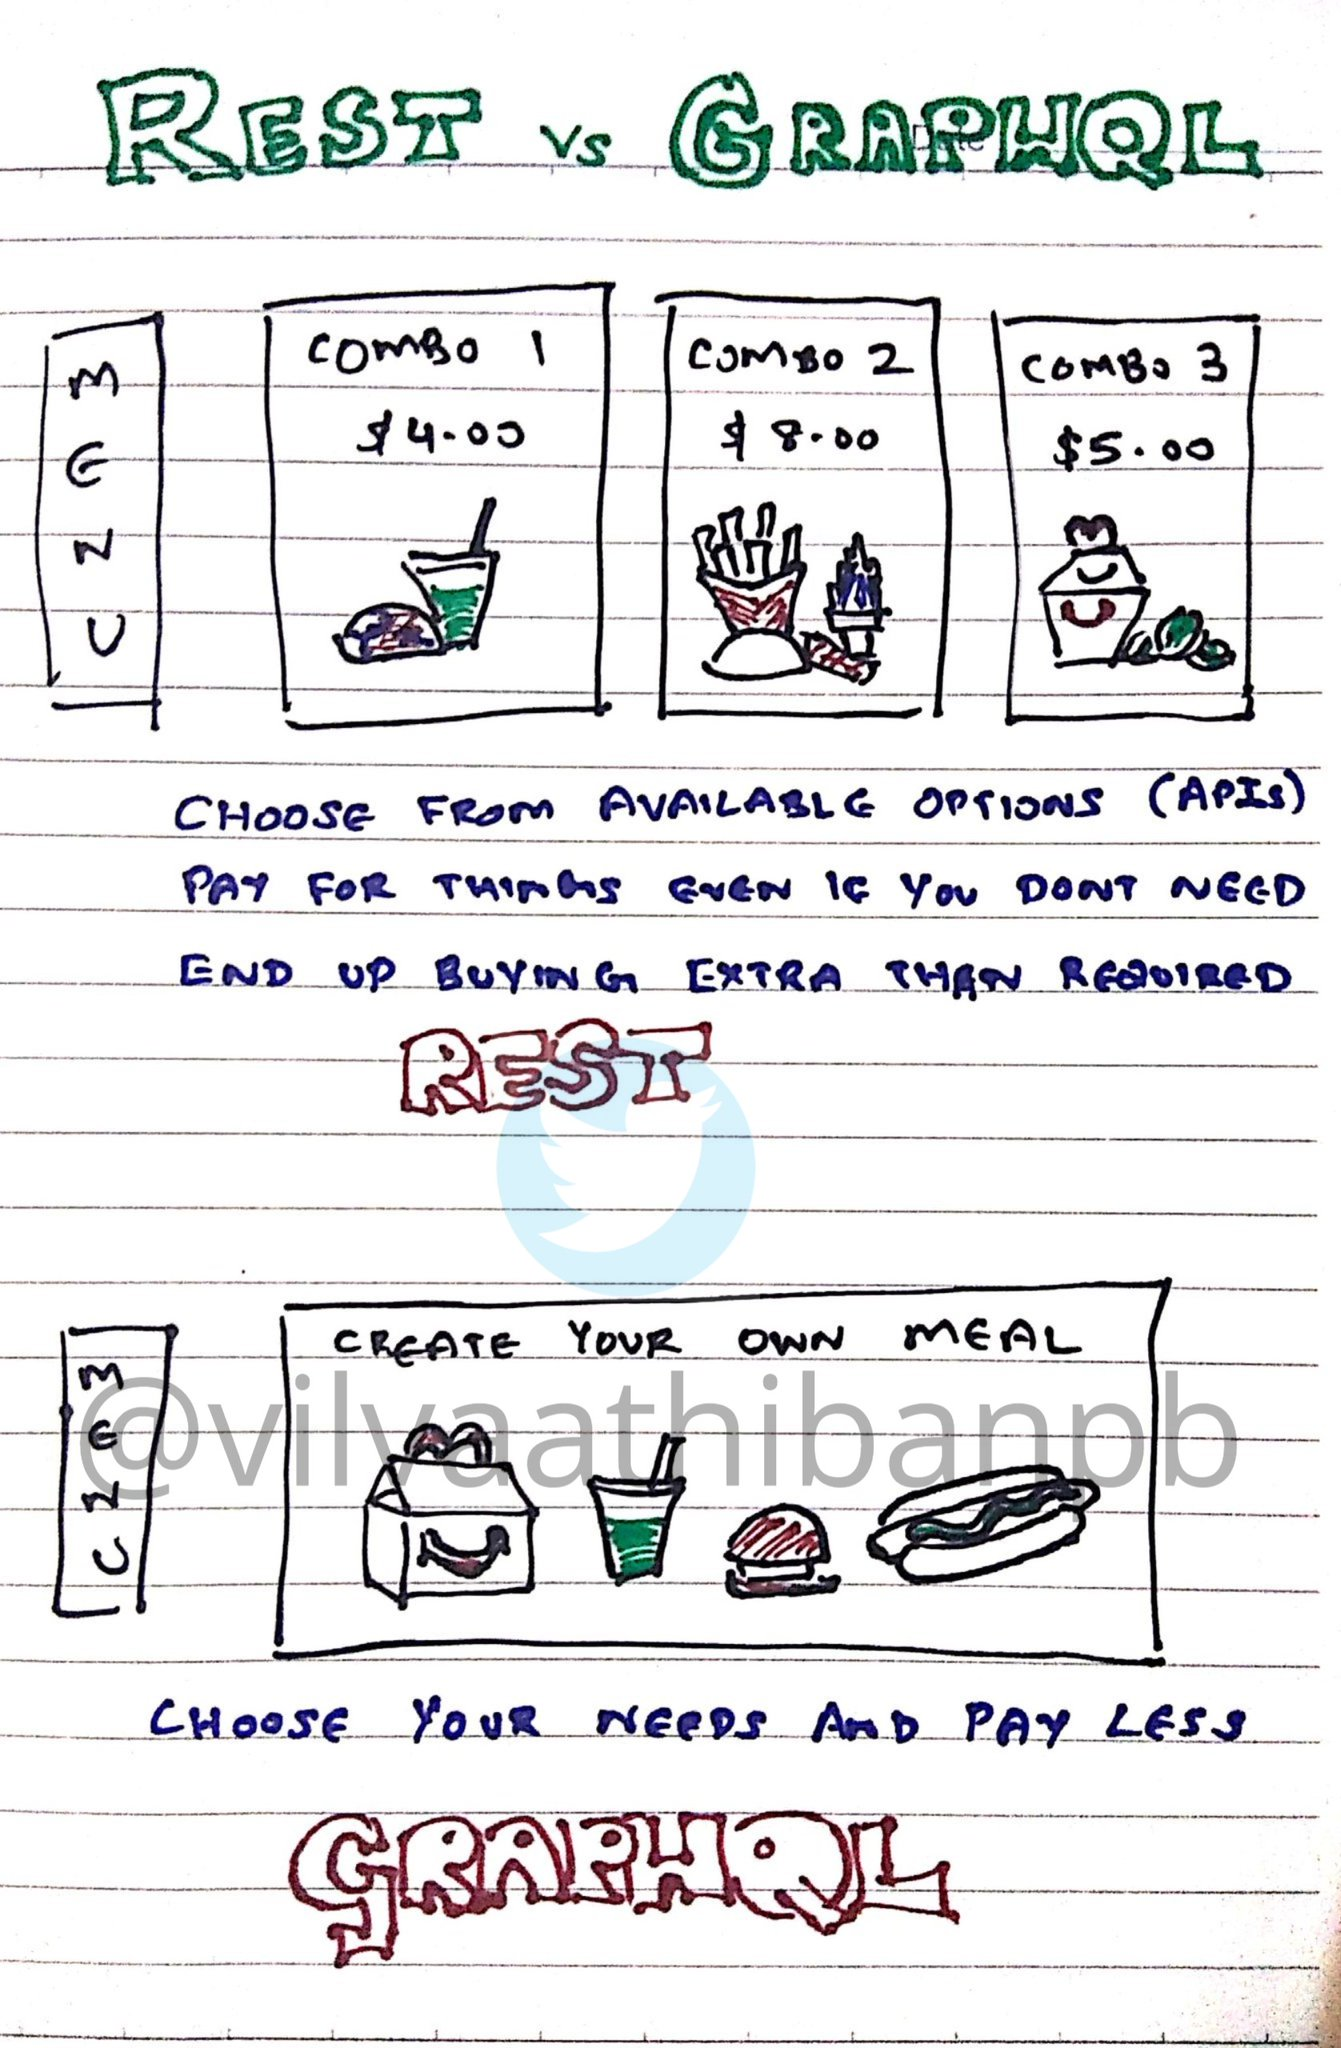 REST VS GRAPHQL
MENU
COMBO 1
$4.00
COMBO 2
$8.00
COMBO 3
$5.00
CHOOSE FROM AVAILABLE OPTIONS (APIs)
PAY FOR THINGS EVEN IF YOU DONT NEED
END UP BUYING EXTRA THAN REQUIRED
REST
MENU
CREATE YOUR OWN MEAL
@vilvaathibanpb
CHOOSE YOUR NEEDS AND PAY LESS
GRAPHQL